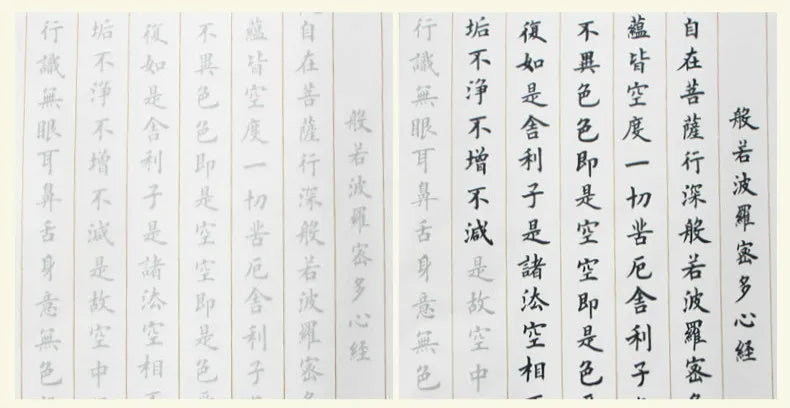 般若波羅密多心経
自在菩薩行深般若波羅密
蘊皆空度一切苦厄舎利子
不異色色即是空空即是色
復如是舎利子是諸法空相
垢不浄不増不減是故空中
行識無眼耳鼻舌身意無色
般若波羅密多心経
自在菩薩行深般若波羅密
蘊皆空度一切苦厄舎利子
不異色色即是空空即是色
復如是舎利子是諸法空相
垢不浄不増不減是故空中
行識無眼耳鼻舌身意無色